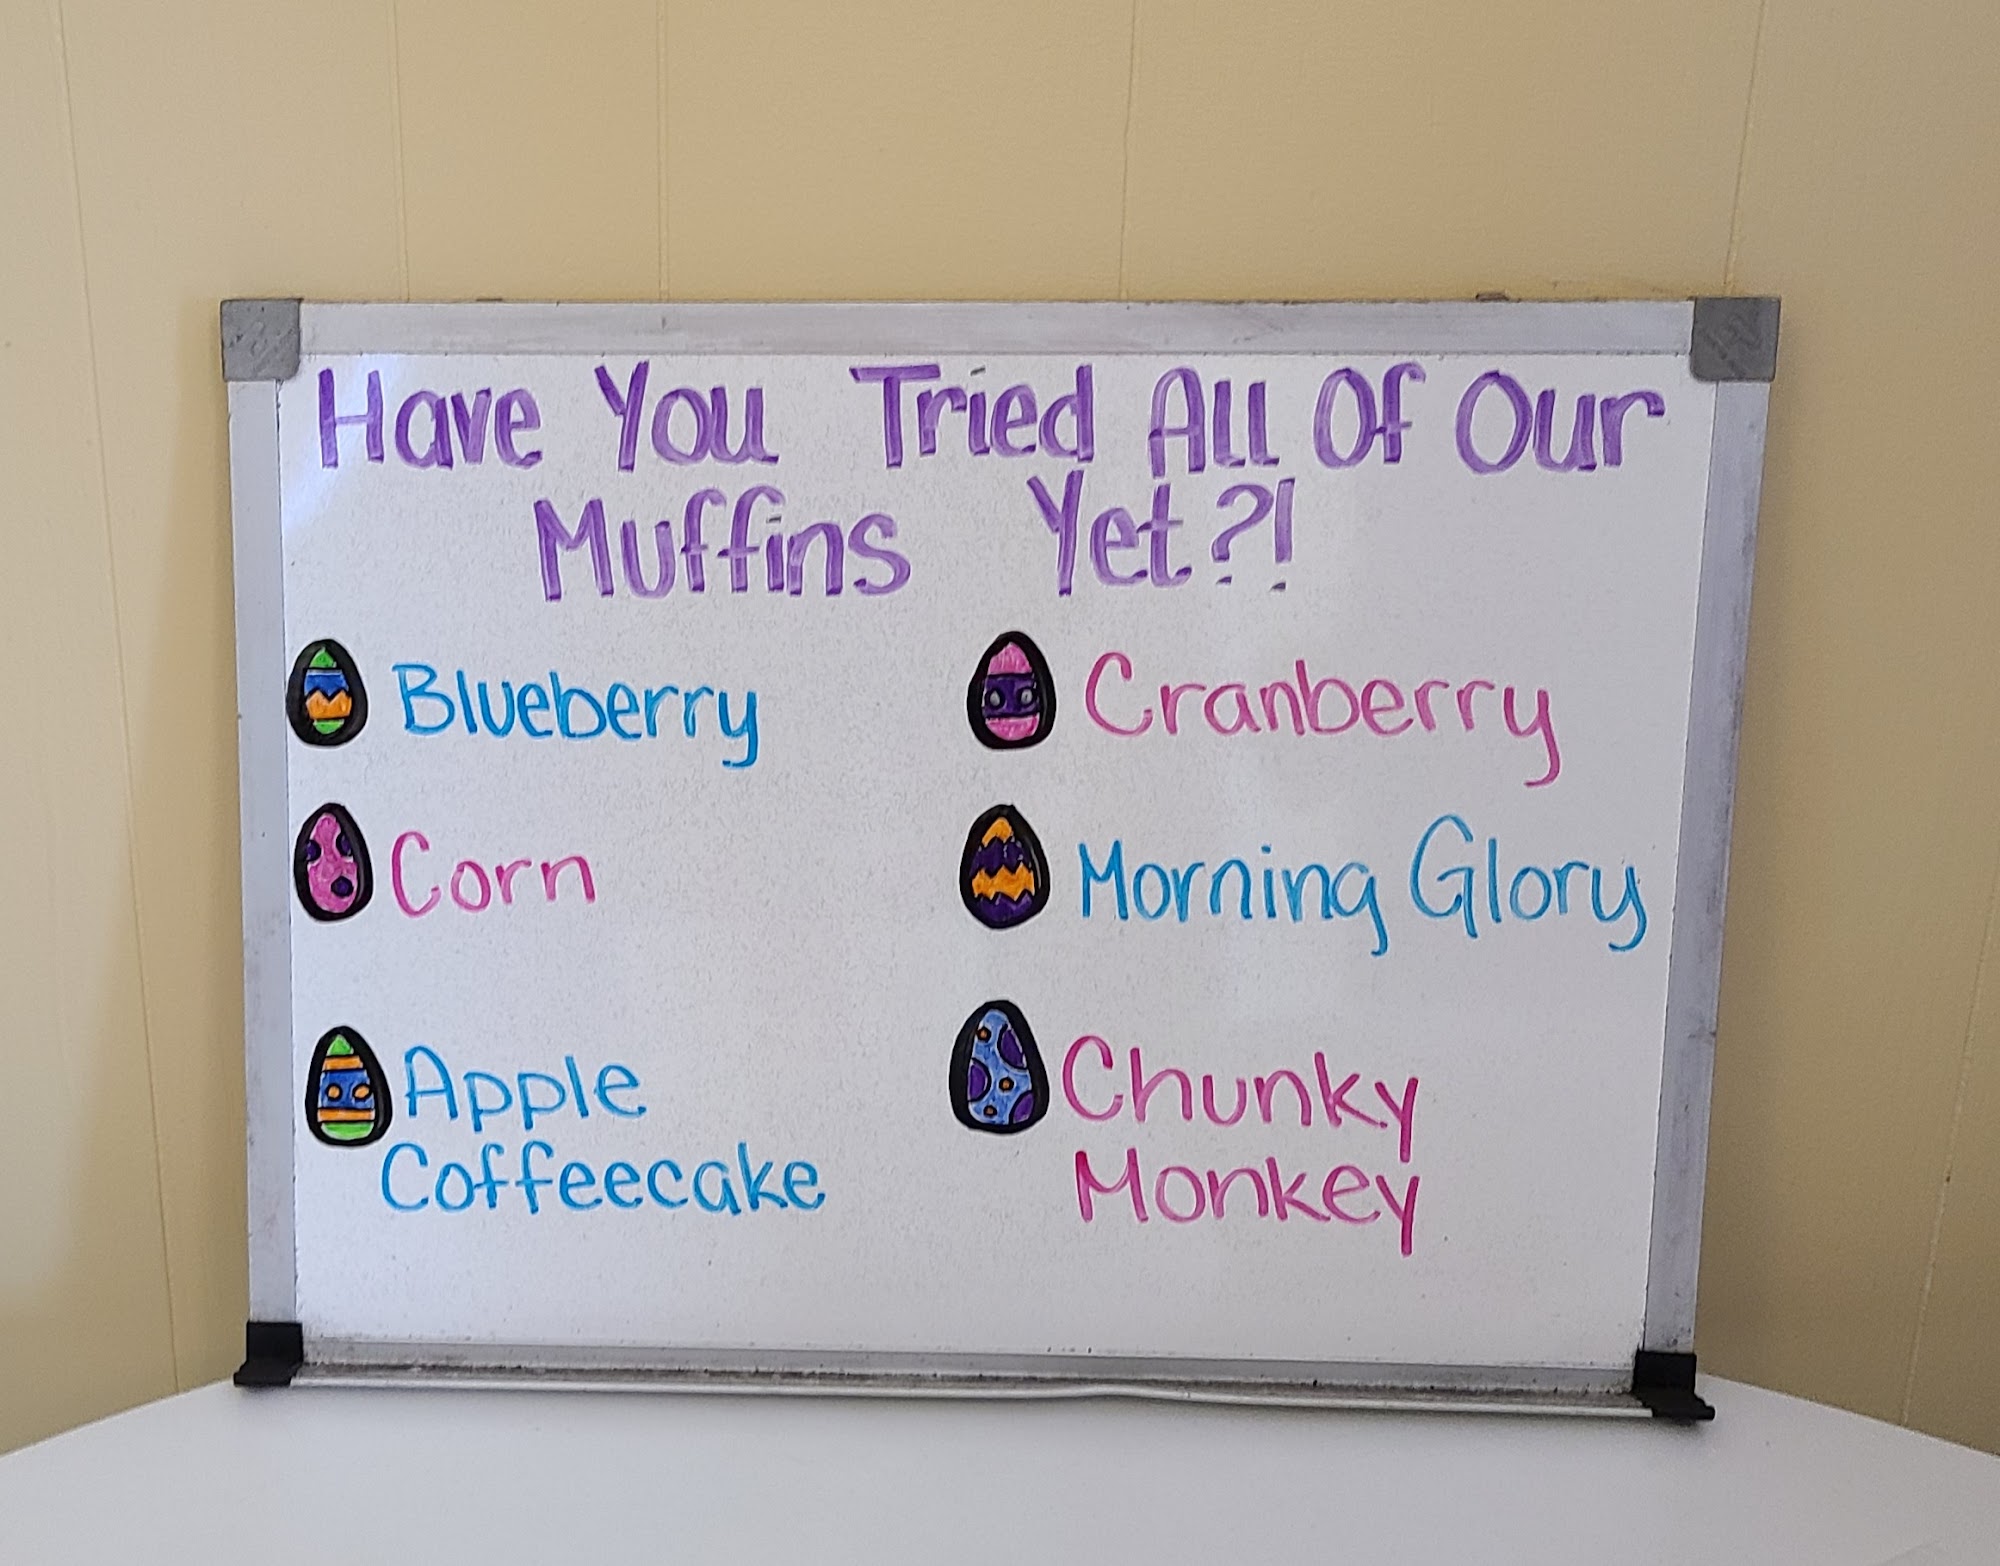 Have You Tried All Of Our
Muffins Yet?!
Blueberry
Cranberry
Corn
Morning Glory
Apple
Coffeecake
Chunky
Monkey